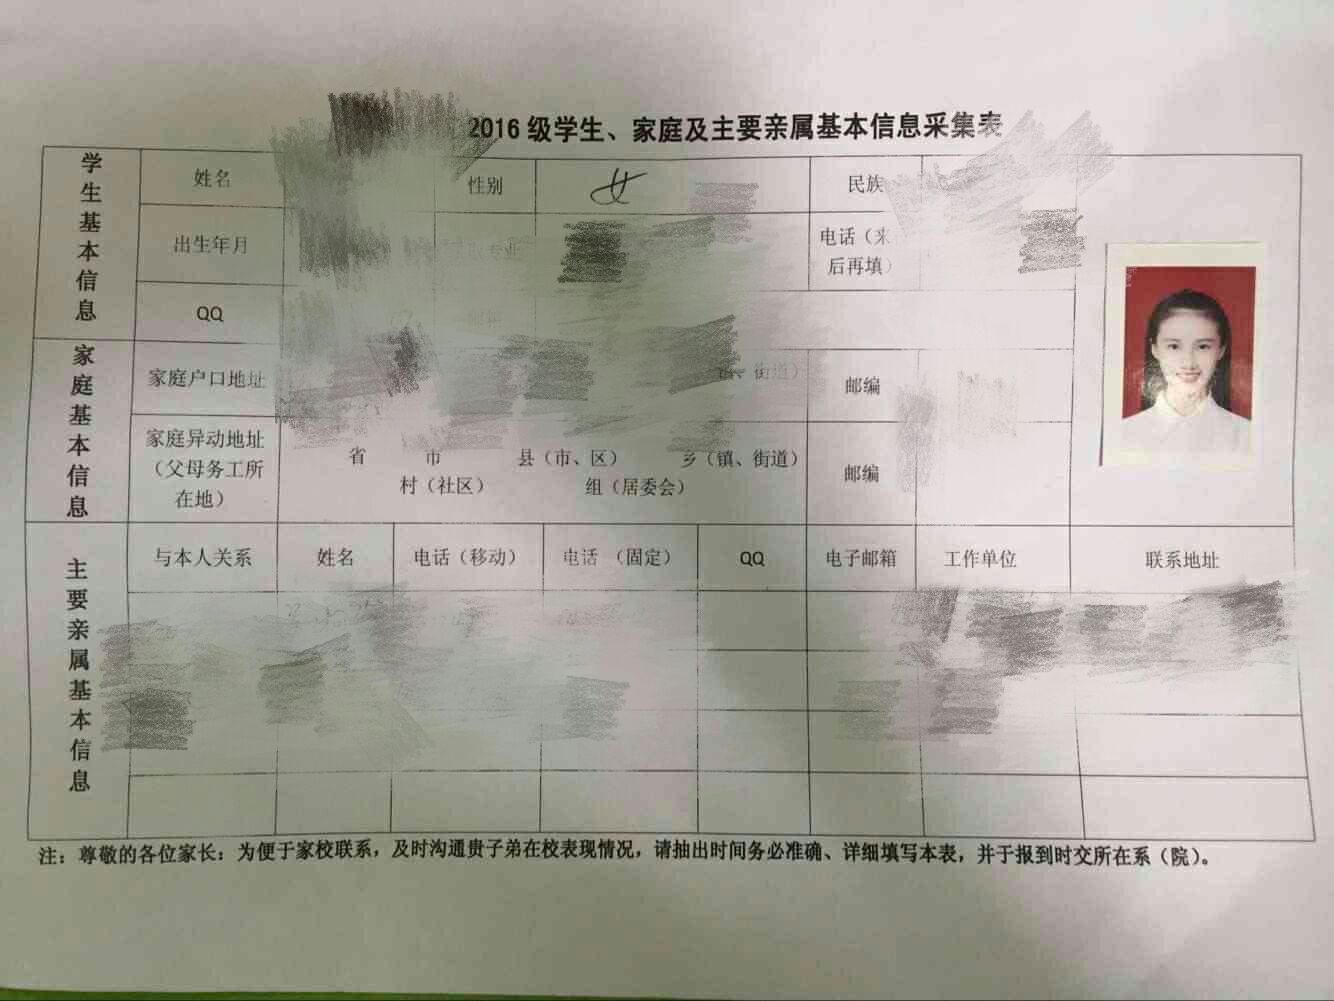 2016 级学生、家庭及主要亲属基本信息采集表
学生基本信息
姓名
性别
女
民族
出生年月
电话（来
后再填）
QQ
家庭基本信息
家庭户口地址
街道）
邮编
家庭异动地址
（父母务工所
在地）
省 市 县（市、区） 乡（镇、街道）
村（社区） 组（居委会）
邮编
主要亲属基本信息
与本人关系 姓名 电话（移动） 电话 （固定） QQ 电子邮箱 工作单位 联系地址
注：尊敬的各位家长：为便于家校联系，及时沟通贵子弟在校表现情况，请抽出时间务必准确、详细填写本表，并于报到时交所在系（院）。